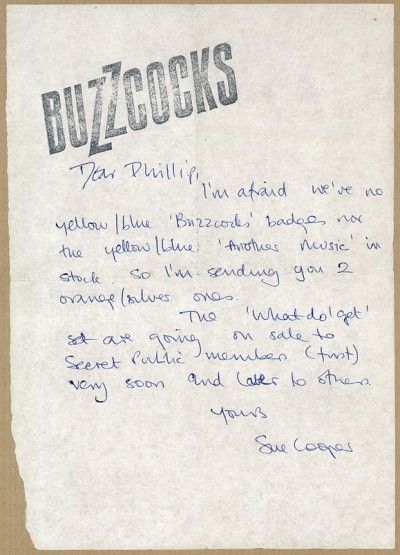 BUZZCOCKS
Dear Phillip,
I'm afraid we've no
yellow/blue 'Buzzcocks' badges nor
the yellow/blue 'Another music' in
stock. So I'm sending you 2
orange/silver ones.
The 'What do I get'
set are going on sale to
Secret Public member (first)
very soon and later to others.
Yours
Sue Cooper